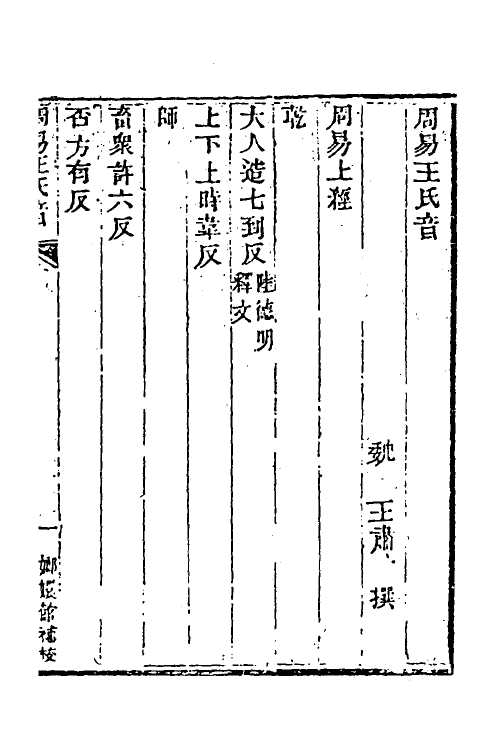 周易王氏音
魏 王肅 撰
周易上經
乾
大人造七到反陸德明釋文
上下上時掌反
師
畜衆許六反
否方有反
周易王氏音 一 嫏嬛館補校